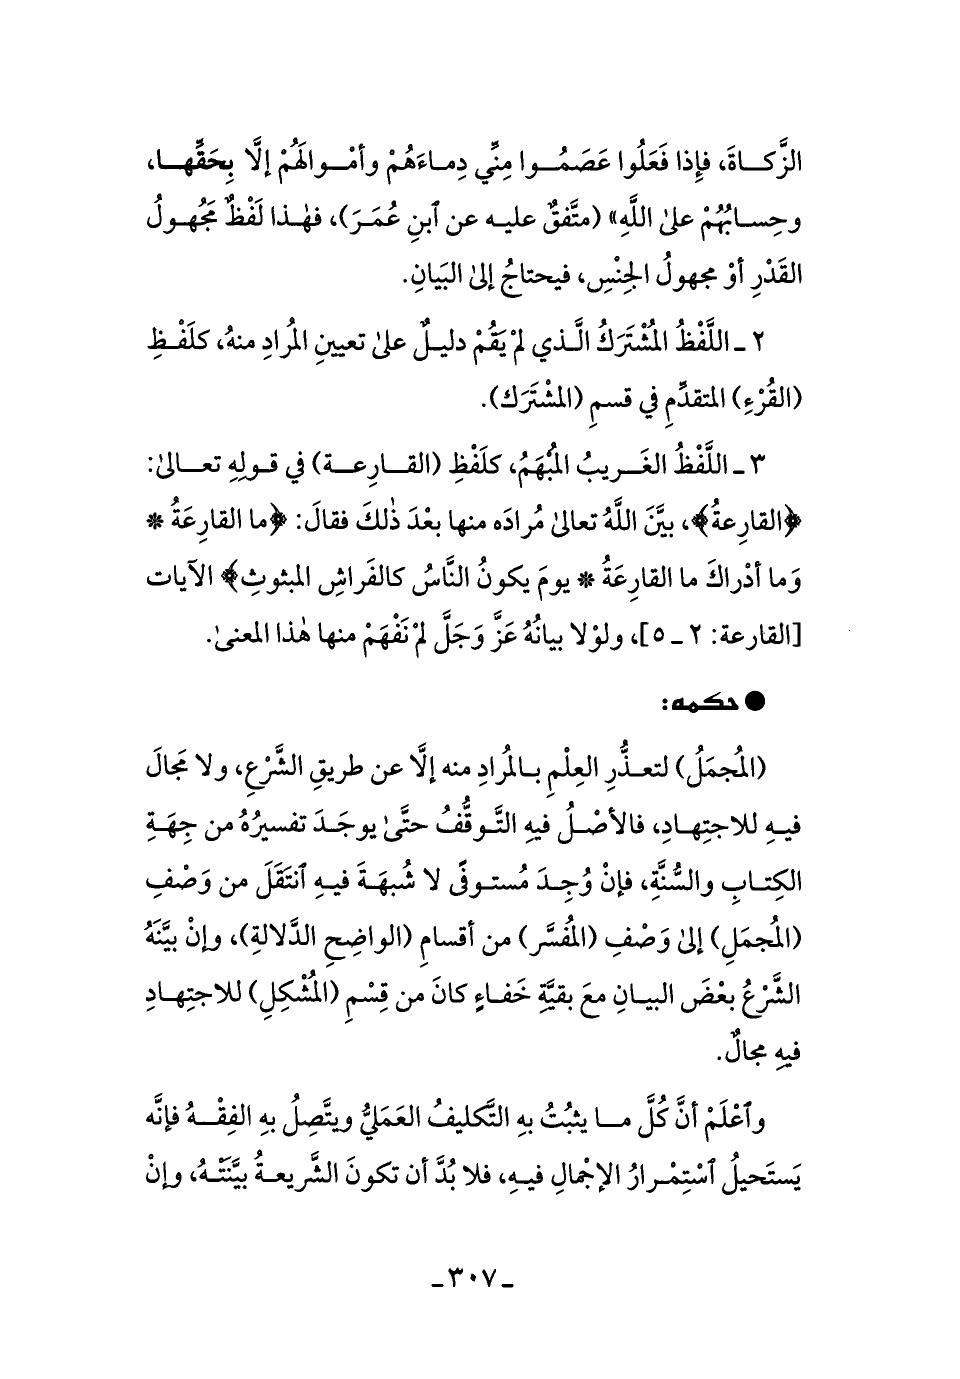 الزَّكاةَ، فإِذا فَعَلُوا عَصَمُوا مِنِّي دِماءَهُمْ وأمْوالَهُمْ إلَّا بِحَقِّها،
وحِسابُهُمْ علىٰ اللَّهِ» (متَّفقٌ عليه عن ٱبنِ عُمَرَ)، فهٰذا لَفْظٌ مَجْهولُ
القَدْرِ أوْ مجهولُ الجِنْسِ، فيحتاجُ إلىٰ البَيانِ.
٢ ـ اللَّفْظُ المُشْتَرَكُ الَّذي لمْ يَقُمْ دليلٌ علىٰ تعيينِ المُرادِ منهُ، كلَفْظِ
(القُرْءِ) المتقدِّمِ في قسمِ (المشْتَرَك).
٣ ـ اللَّفْظُ الغَريبُ المُبْهَمُ، كلَفْظِ (القارِعة) في قولِهِ تعالىٰ:
﴿القارِعةُ﴾، بيَّنَ اللَّهُ تعالىٰ مُرادَه منها بعْدَ ذٰلكَ فقالَ: ﴿ما القارِعَةُ *
وَما أدْراكَ ما القارِعَةُ * يومَ يكونُ النَّاسُ كالفَراشِ المبثوثِ﴾ الآيات
[القارعة: ٢ ـ ٥]، ولوْلا بيانُهُ عَزَّ وَجَلَّ لمْ نَفْهَمْ منها هٰذا المعنىٰ.
● حكمه:
(المُجمَلُ) لتعذُّرِ العِلْمِ بالمُرادِ منه إلَّا عن طريقِ الشَّرْعِ، ولا مَجالَ
فيهِ للاجتِهادِ، فالأصْلُ فيهِ التَّوقُّفُ حتَّىٰ يوجَدَ تفسيرُهُ من جِهَةِ
الكِتابِ والسُّنَّةِ، فإنْ وُجِدَ مُستوفًى لا شُبهَةَ فيهِ ٱنتَقَلَ من وَصْفِ
(المُجمَلِ) إلىٰ وَصْفِ (المُفسَّر) من أقسامِ (الواضِحِ الدَّلالةِ)، وإنْ بيَّنَهُ
الشَّرْعُ بعْضَ البيانِ معَ بقيَّةِ خَفاءٍ كانَ من قِسْمِ (المُشْكِلِ) للاجتِهادِ
فيهِ مجالٌ.
وٱعْلَمْ أنَّ كُلَّ ما يثبُتُ بهِ التَّكليفُ العَمَليُّ ويتَّصِلُ بهِ الفِقْهُ فإنَّه
يَستَحيلُ ٱسْتِمْرارُ الإجْمالِ فيهِ، فلا بُدَّ أن تكونَ الشَّريعةُ بيَّنَتْهُ، وإنْ
ـ ٣٠٧ ـ